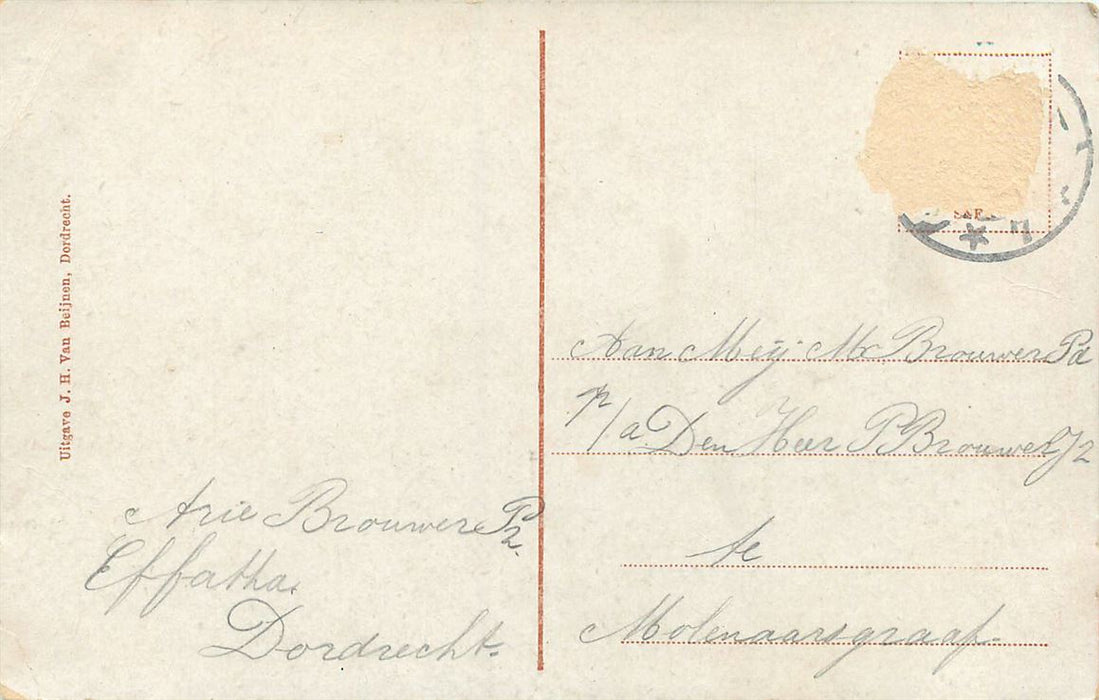 Uitgave J. H. Van Beijnen, Dordrecht.
Arie Brouwer Pz.
Effatha.
Dordrecht.
Aan Mej. M. Brouwer Pd
p/a Den Heer P Brouwer Jz
te
Molenaarsgraaf.